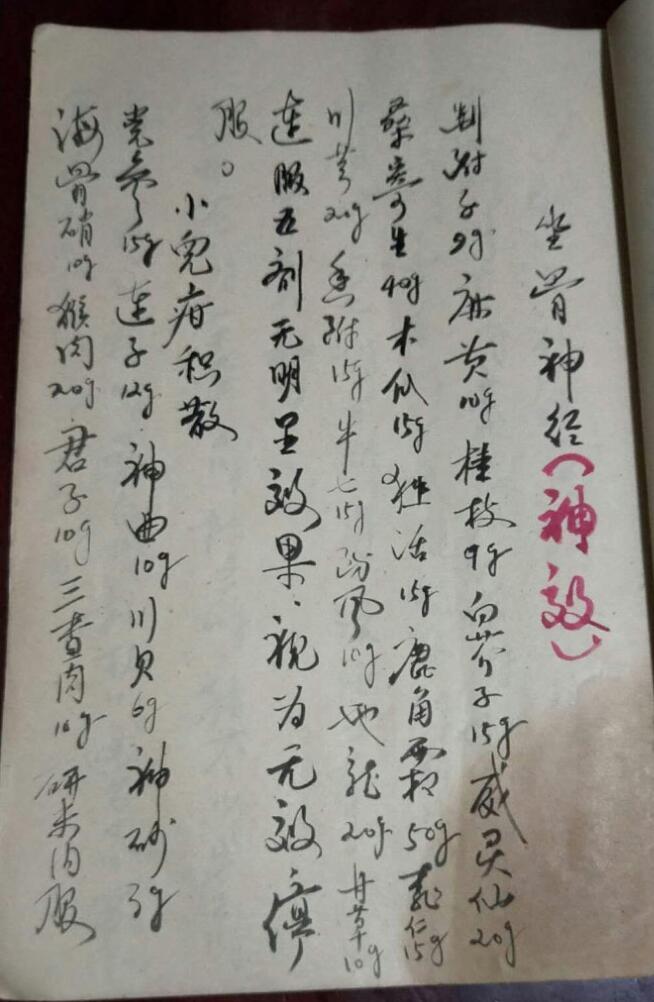 坐骨神经（神效）
制附子9g 麻黄10g 桂枝9g 白芥子15g 威灵仙20g
桑寄生40g 木瓜15g 独活15g 鹿角霜50g 桃仁15g
川芎20g 香附15g 牛七15g 防风10g 地龙20g 甘草10g
连服五剂无明显效果、视为无效停
服。
小儿疳积散
党参15g 连子12g 神曲10g 川贝6g 神砂3g
海骨硝10g 猴肉20g 君子10g 三查肉10g 研末内服